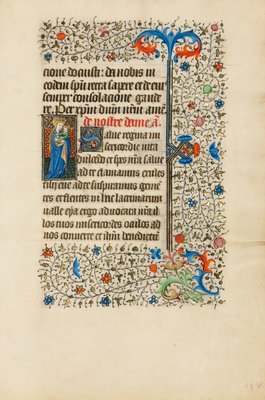 cione docuisti: da nobis in
eodem spū recta sapere et de eiꝰ
semper consolacione gaude
re. Per xpm dnm nrm amē
de nostre dame. A.
Salue regina mi
sericordie vita
dulcedo et spes nrā salue
ad te clamamus exules
filij eue ad te suspiramus geme
tes et flentes in hac lacrimarum
ualle eya ergo aduocata nrā il
los tuos misericordes oculos ad
nos conuerte et ihm benedictum
198